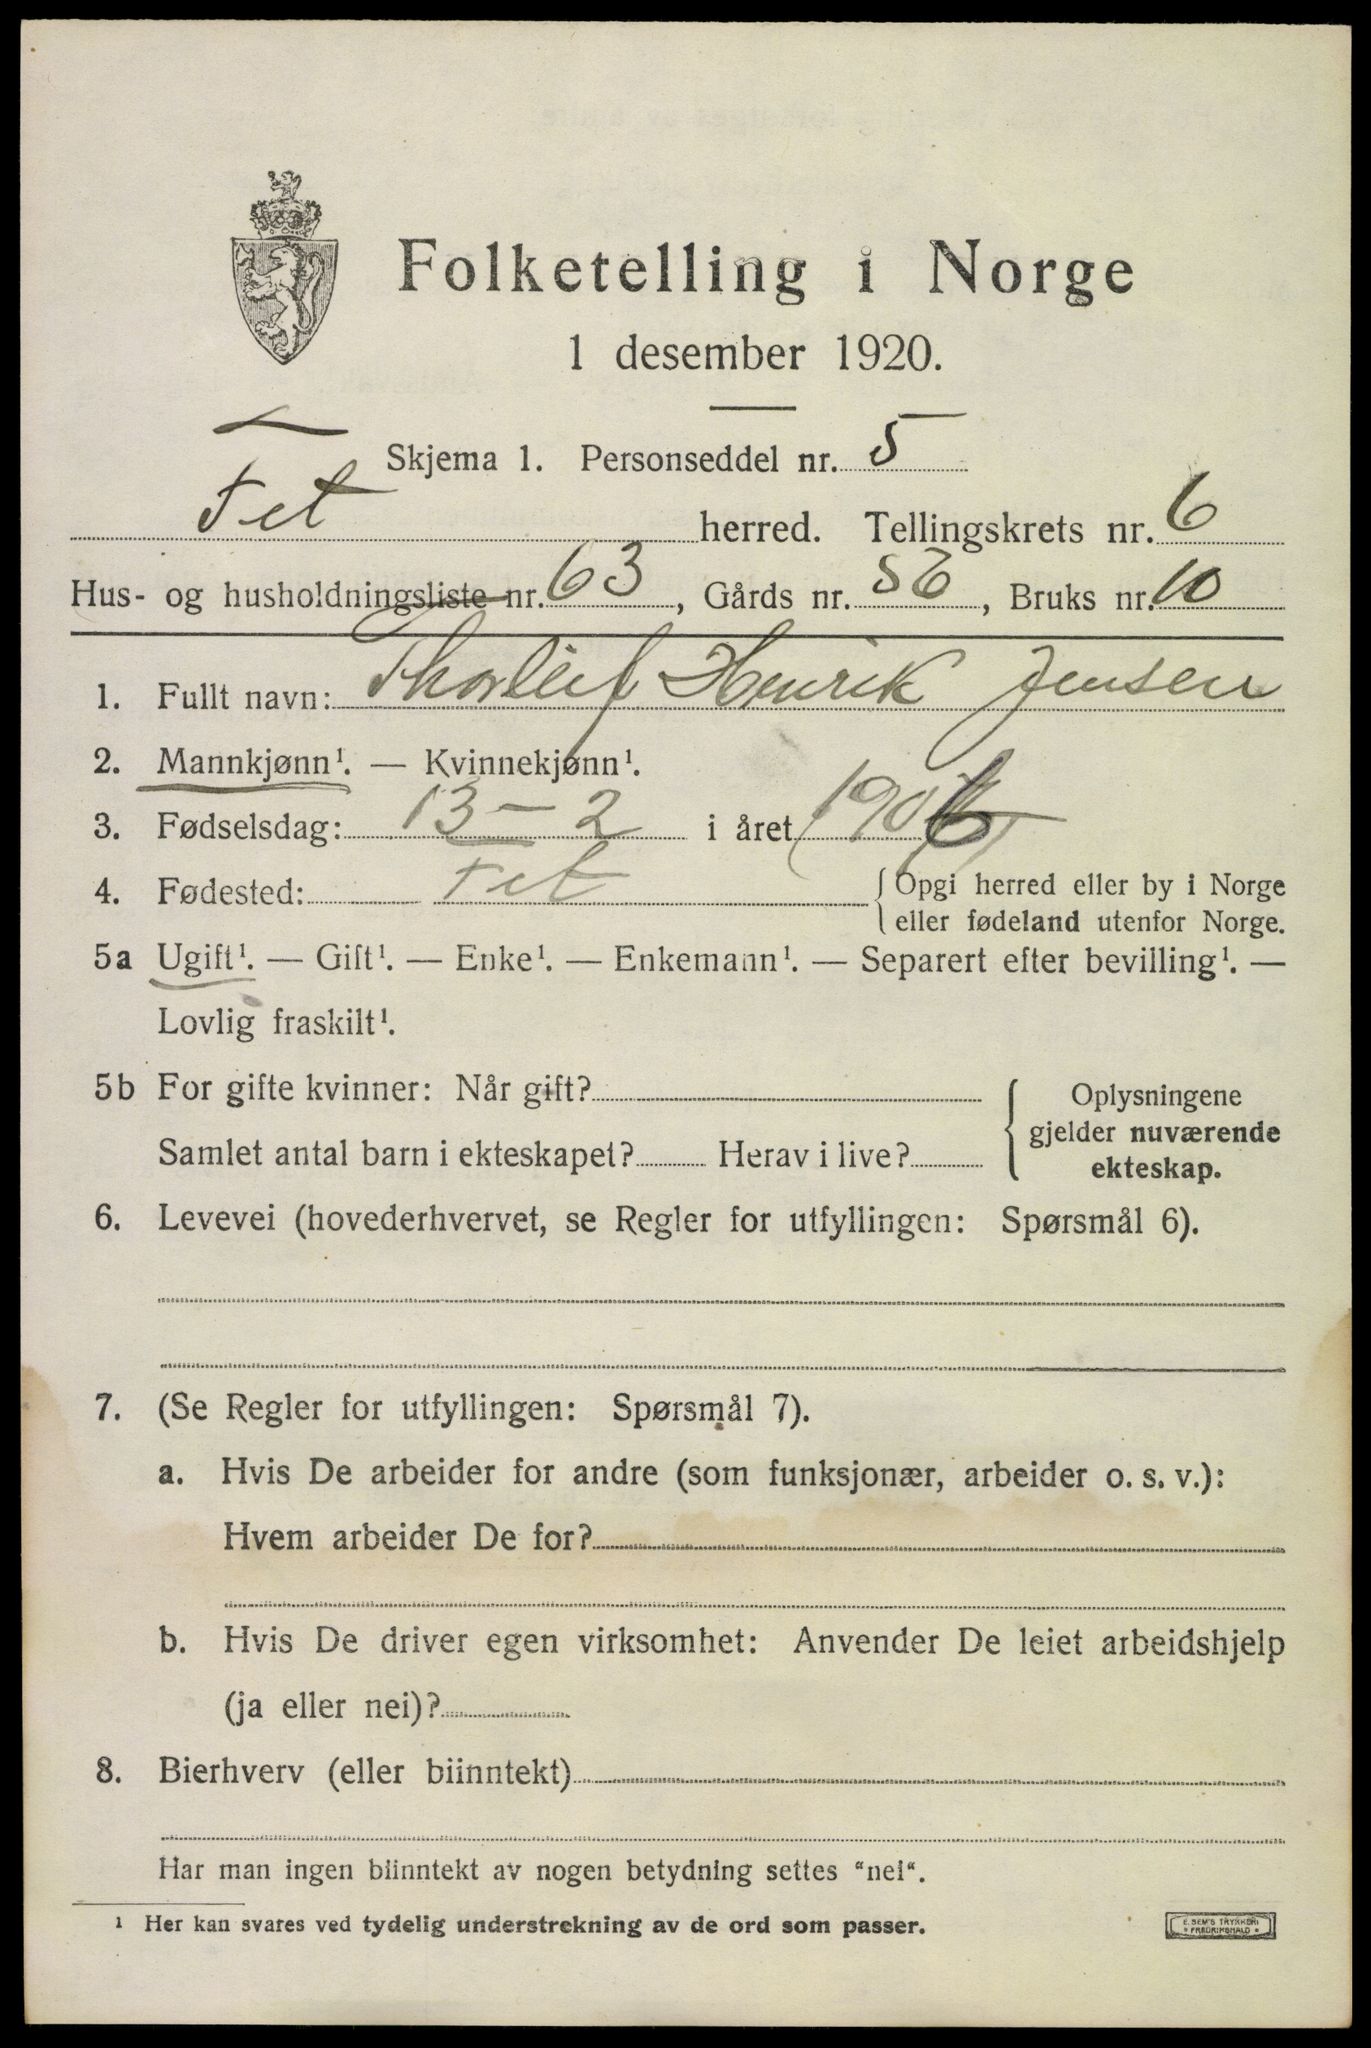 Folketelling i Norge
1 desember 1920.
Skjema 1. Personseddel nr. 5
Fet herred. Tellingskrets nr. 6
Hus- og husholdningsliste nr. 63, Gårds nr. 56, Bruks nr. 10
1. Fullt navn: Thorleif Henrik Jensen
2. Mannkjønn¹. — Kvinnekjønn¹.
3. Fødselsdag: 13 - 2 i året 1906
4. Fødested: Fet {Opgi herred eller by i Norge
eller fødeland utenfor Norge.
5a Ugift¹. — Gift¹. — Enke¹. — Enkemann¹. — Separert efter bevilling¹. —
Lovlig fraskilt¹.
5b For gifte kvinner: Når gift?
Samlet antal barn i ekteskapet? Herav i live?
Oplysningene
gjelder nuværende
ekteskap.
6. Levevei (hovederhvervet, se Regler for utfyllingen: Spørsmål 6).
7. (Se Regler for utfyllingen: Spørsmål 7).
a. Hvis De arbeider for andre (som funksjonær, arbeider o. s. v.):
Hvem arbeider De for?
b. Hvis De driver egen virksomhet: Anvender De leiet arbeidshjelp
(ja eller nei)?
8. Bierhverv (eller biinntekt)
Har man ingen biinntekt av nogen betydning settes "nei".
¹ Her kan svares ved tydelig understrekning av de ord som passer.
E. SEM'S TRYKKERI
* FREDRIKSHALD *